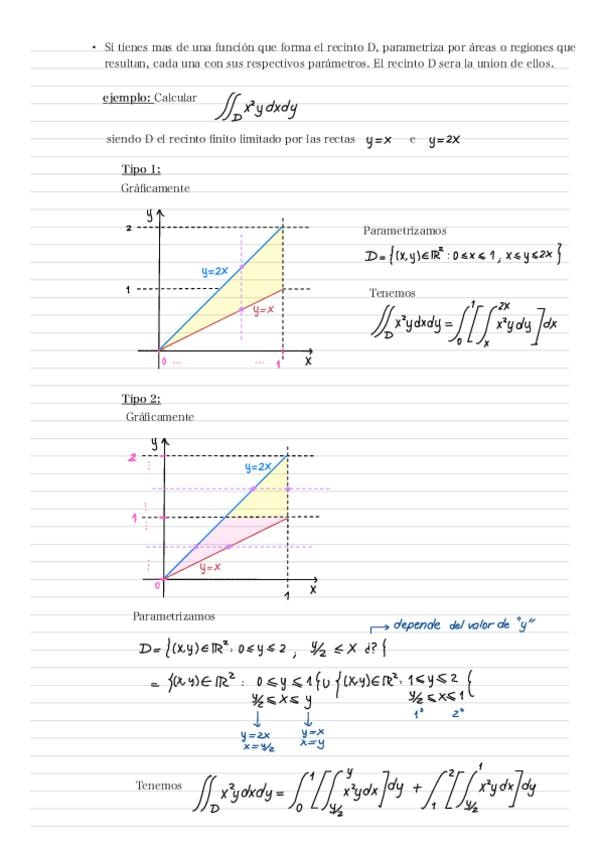 • Si tienes mas de una función que forma el recinto D, parametriza por áreas o regiones que
resultan, cada una con sus respectivos parámetros. El recinto D sera la union de ellos.
ejemplo: Calcular ∬_D x²y dxdy
siendo D el recinto finito limitado por las rectas y=x e y=2x
Tipo 1:
Gráficamente
y
2
y=2x
1
y=x
0 ... ... 1 x
Parametrizamos
D={(x,y)∈ℝ² : 0≤x≤1, x≤y≤2x}
Tenemos
∬_D x²ydxdy = ∫_0^1 [∫_x^{2x} x²ydy]dx
Tipo 2:
Gráficamente
y
2
y=2x
1
y=x
0
1 x
Parametrizamos
→ depende del valor de "y"
D={(x,y)∈ℝ²: 0≤y≤2, y/2 ≤ x ¿?}
= {(x,y)∈ℝ²: 0≤y≤1} ∪ {(x,y)∈ℝ²: 1≤y≤2}
y/2≤x≤y y/2≤x≤1
↓ ↓ 1° 2°
y=2x y=x
x=y/2 x=y
Tenemos ∬_D x²ydxdy = ∫_0^1 [∫_{y/2}^y x²ydx]dy + ∫_1^2 [∫_{y/2}^1 x²ydx]dy